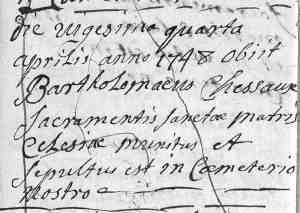 die vigesima quarta
aprilis anno 1748 obiit
Bartholomaeus Chessaux
Sacramentis sanctae matris
eclesiae munitus et
sepultus est in Coemeterio
nostro